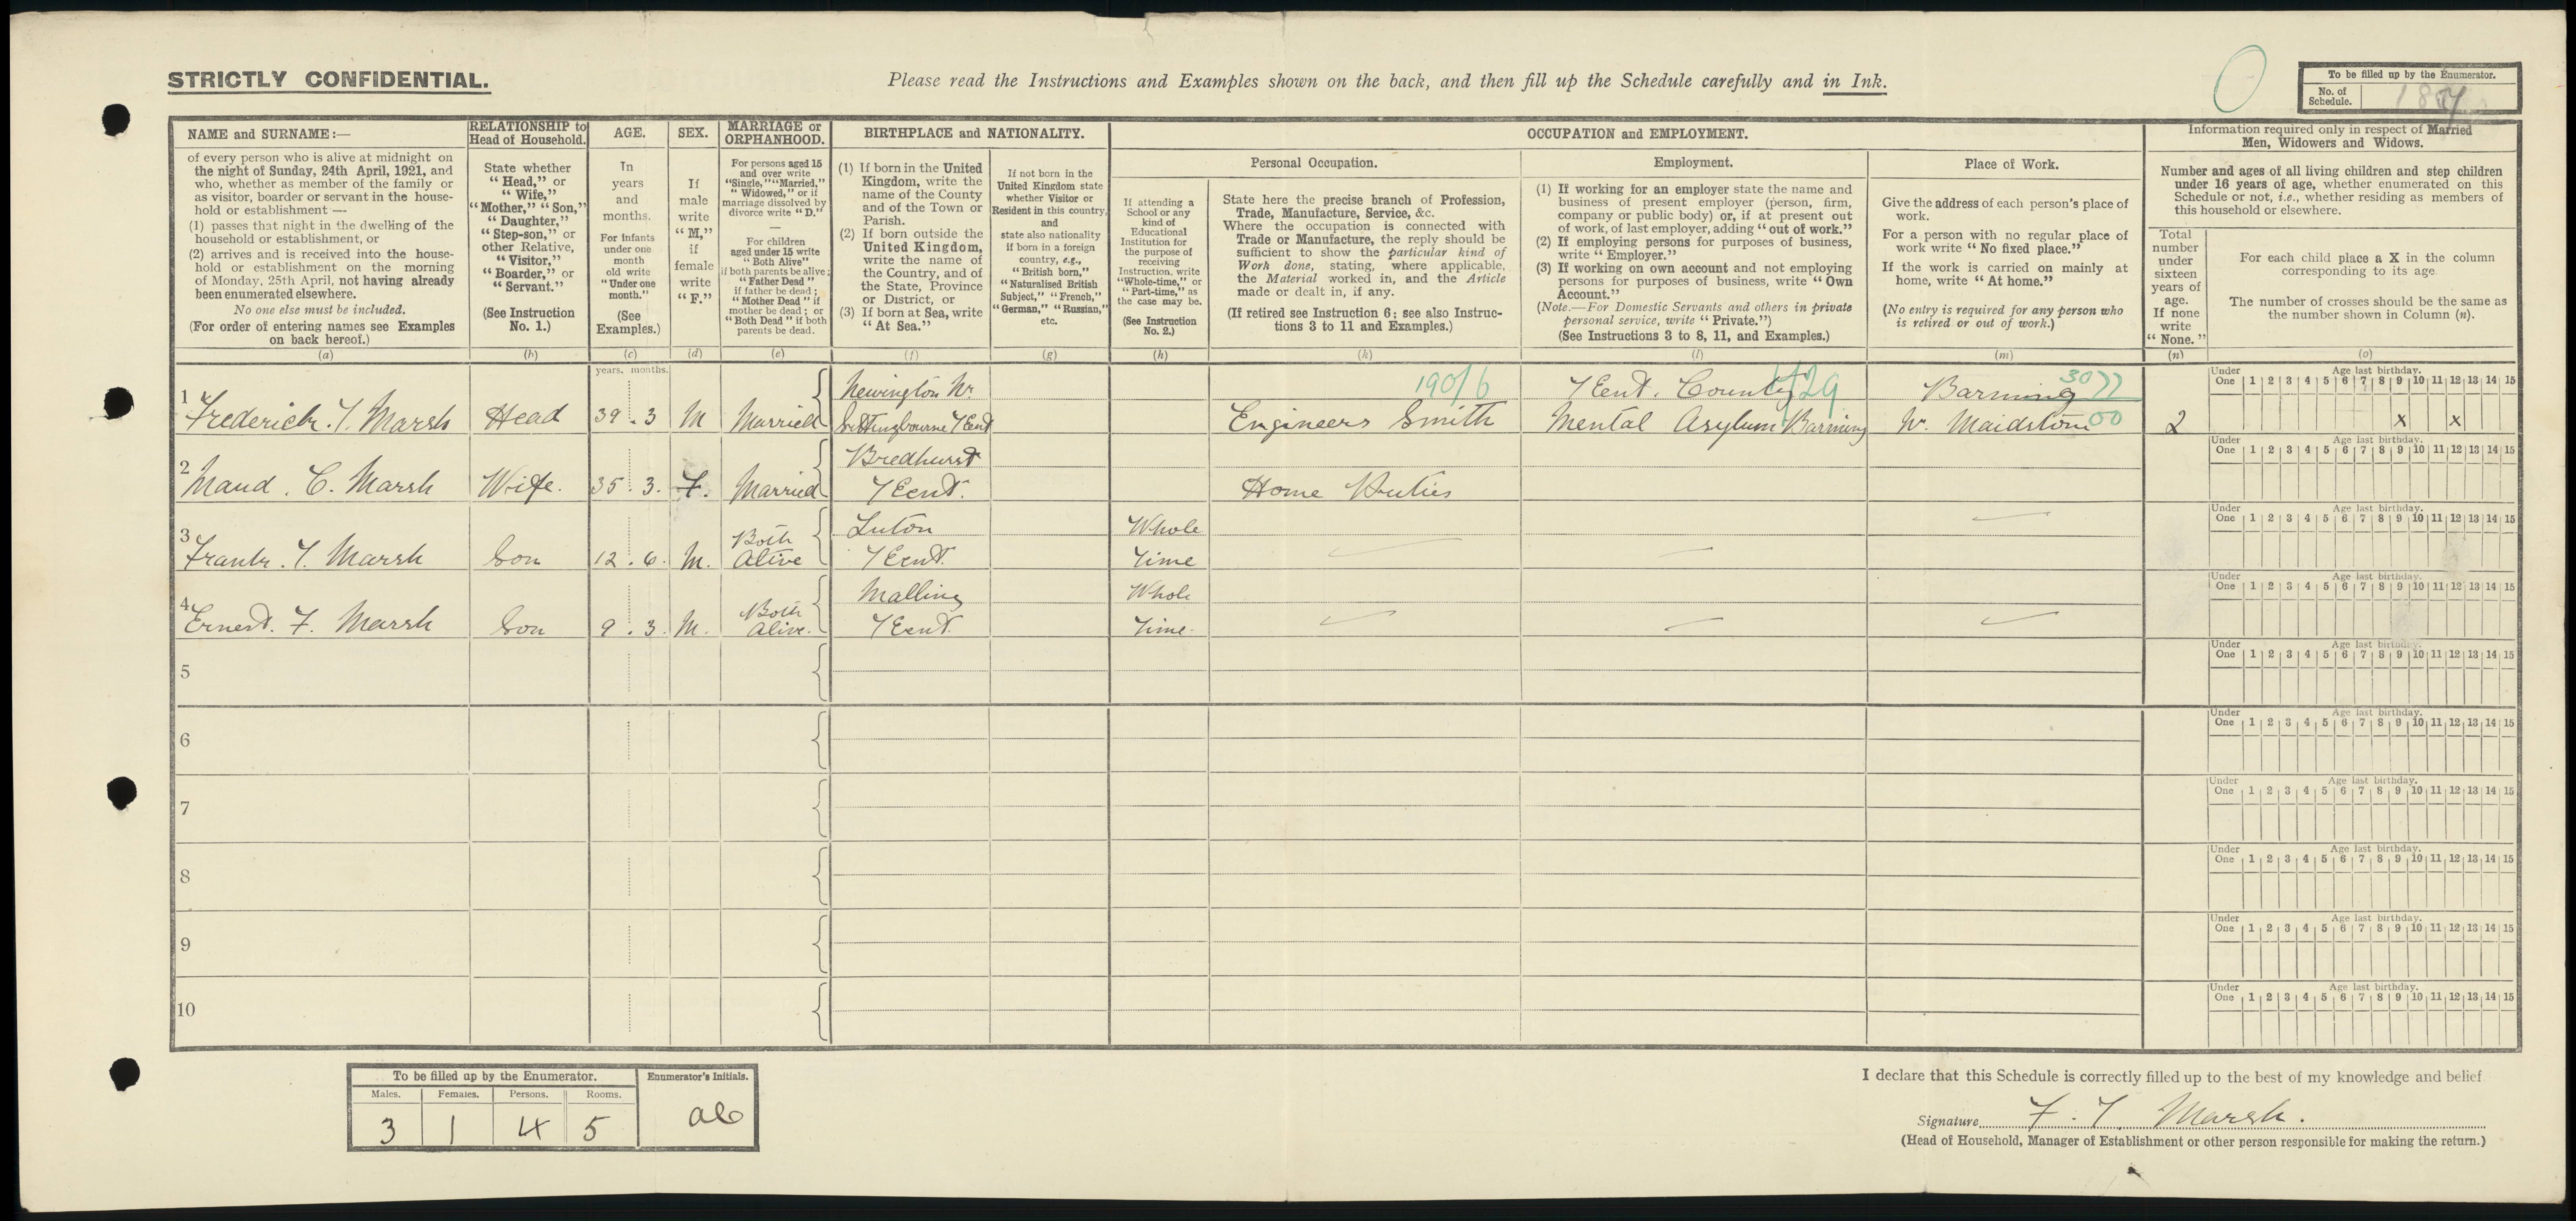 STRICTLY CONFIDENTIAL.
Please read the Instructions and Examples shown on the back, and then fill up the Schedule carefully and in Ink.
To be filled up by the Enumerator.
No. of Schedule.
NAME and SURNAME:—
of every person who is alive at midnight on
the night of Sunday, 24th April, 1921, and
who, whether as member of the family or
as visitor, boarder or servant in the house-
hold or establishment —
(1) passes that night in the dwelling of the
household or establishment, or
(2) arrives and is received into the house-
hold or establishment on the morning
of Monday, 25th April, not having already
been enumerated elsewhere.
No one else must be included.
(For order of entering names see Examples
on back hereof.)
(a)
RELATIONSHIP to
Head of Household.
State whether
"Head," or
"Wife,"
"Mother," "Son,"
"Daughter,"
"Step-son," or
other Relative,
"Visitor,"
"Boarder," or
"Servant."
(See Instruction
No. 1.)
(b)
AGE.
In
years
and
months.
For infants
under one
month
old write
"Under one
month."
(See
Examples.)
(c)
SEX.
If
male
write
"M,"
if
female
write
"F."
(d)
MARRIAGE or
ORPHANHOOD.
For persons aged 15
and over write
"Single," "Married,"
"Widowed," or if
marriage dissolved by
divorce write "D."
—
For children
aged under 15 write
"Both Alive"
if both parents be alive;
"Father Dead"
if father be dead;
"Mother Dead" if
mother be dead; or
"Both Dead" if both
parents be dead.
(e)
BIRTHPLACE and NATIONALITY.
(1) If born in the United
Kingdom, write the
name of the County
and of the Town or
Parish.
(2) If born outside the
United Kingdom,
write the name of
the Country, and of
the State, Province
or District, or
(3) If born at Sea, write
"At Sea."
(f)
If not born in the
United Kingdom state
whether Visitor or
Resident in this country,
and
state also nationality
if born in a foreign
country, e.g.,
"British born,"
"Naturalised British
Subject," "French,"
"German," "Russian,"
etc.
(g)
OCCUPATION and EMPLOYMENT.
If attending a
School or any
kind of
Educational
Institution for
the purpose of
receiving
Instruction, write
"Whole-time," or
"Part-time," as
the case may be.
(See Instruction
No. 2.)
(h)
Personal Occupation.
State here the precise branch of Profession,
Trade, Manufacture, Service, &c.
Where the occupation is connected with
Trade or Manufacture, the reply should be
sufficient to show the particular kind of
Work done, stating, where applicable,
the Material worked in, and the Article
made or dealt in, if any.
(If retired see Instruction 6; see also Instruc-
tions 3 to 11 and Examples.)
(k)
Employment.
(1) If working for an employer state the name and
business of present employer (person, firm,
company or public body) or, if at present out
of work, of last employer, adding "out of work."
(2) If employing persons for purposes of business,
write "Employer."
(3) If working on own account and not employing
persons for purposes of business, write "Own
Account."
(Note.—For Domestic Servants and others in private
personal service, write "Private.")
(See Instructions 3 to 8, 11, and Examples.)
(l)
Place of Work.
Give the address of each person's place of
work.
For a person with no regular place of
work write "No fixed place."
If the work is carried on mainly at
home, write "At home."
(No entry is required for any person who
is retired or out of work.)
(m)
Information required only in respect of Married
Men, Widowers and Widows.
Number and ages of all living children and step children
under 16 years of age, whether enumerated on this
Schedule or not, i.e., whether residing as members of
this household or elsewhere.
Total
number
under
sixteen
years of
age.
If none
write
"None."
(n)
For each child place a X in the column
corresponding to its age
The number of crosses should be the same as
the number shown in Column (n).
(o)
years. months.
Under Age last birthday.
One 1 2 3 4 5 6 7 8 9 10 11 12 13 14 15
1 Newington Nr. 190/6 Kent. County 429 Barming 3077
Frederick. T. Marsh Head 39 . 3 M Married Sittingbourne Kent Engineers Smith Mental Asylum Barming Nr. Maidstone 00 2 X X
Under Age last birthday.
One 1 2 3 4 5 6 7 8 9 10 11 12 13 14 15
2 Bredhurst
Maud. C. Marsh Wife. 35 . 3. F. Married Kent. Home Duties
Under Age last birthday.
One 1 2 3 4 5 6 7 8 9 10 11 12 13 14 15
3 Both Luton Whole
Frank. T. Marsh Son 12 . 6. M. Alive Kent. Time
Under Age last birthday.
One 1 2 3 4 5 6 7 8 9 10 11 12 13 14 15
4 Both Malling Whole
Ernest. F. Marsh Son 9 . 3. M. Alive. Kent. Time.
Under Age last birthday.
One 1 2 3 4 5 6 7 8 9 10 11 12 13 14 15
5
Under Age last birthday.
One 1 2 3 4 5 6 7 8 9 10 11 12 13 14 15
6
Under Age last birthday.
One 1 2 3 4 5 6 7 8 9 10 11 12 13 14 15
7
Under Age last birthday.
One 1 2 3 4 5 6 7 8 9 10 11 12 13 14 15
8
Under Age last birthday.
One 1 2 3 4 5 6 7 8 9 10 11 12 13 14 15
9
Under Age last birthday.
One 1 2 3 4 5 6 7 8 9 10 11 12 13 14 15
10
To be filled up by the Enumerator.
Males. Females. Persons. Rooms.
3 1 4 5
Enumerator's Initials.
I declare that this Schedule is correctly filled up to the best of my knowledge and belief
Signature F. T. Marsh.
(Head of Household, Manager of Establishment or other person responsible for making the return.)